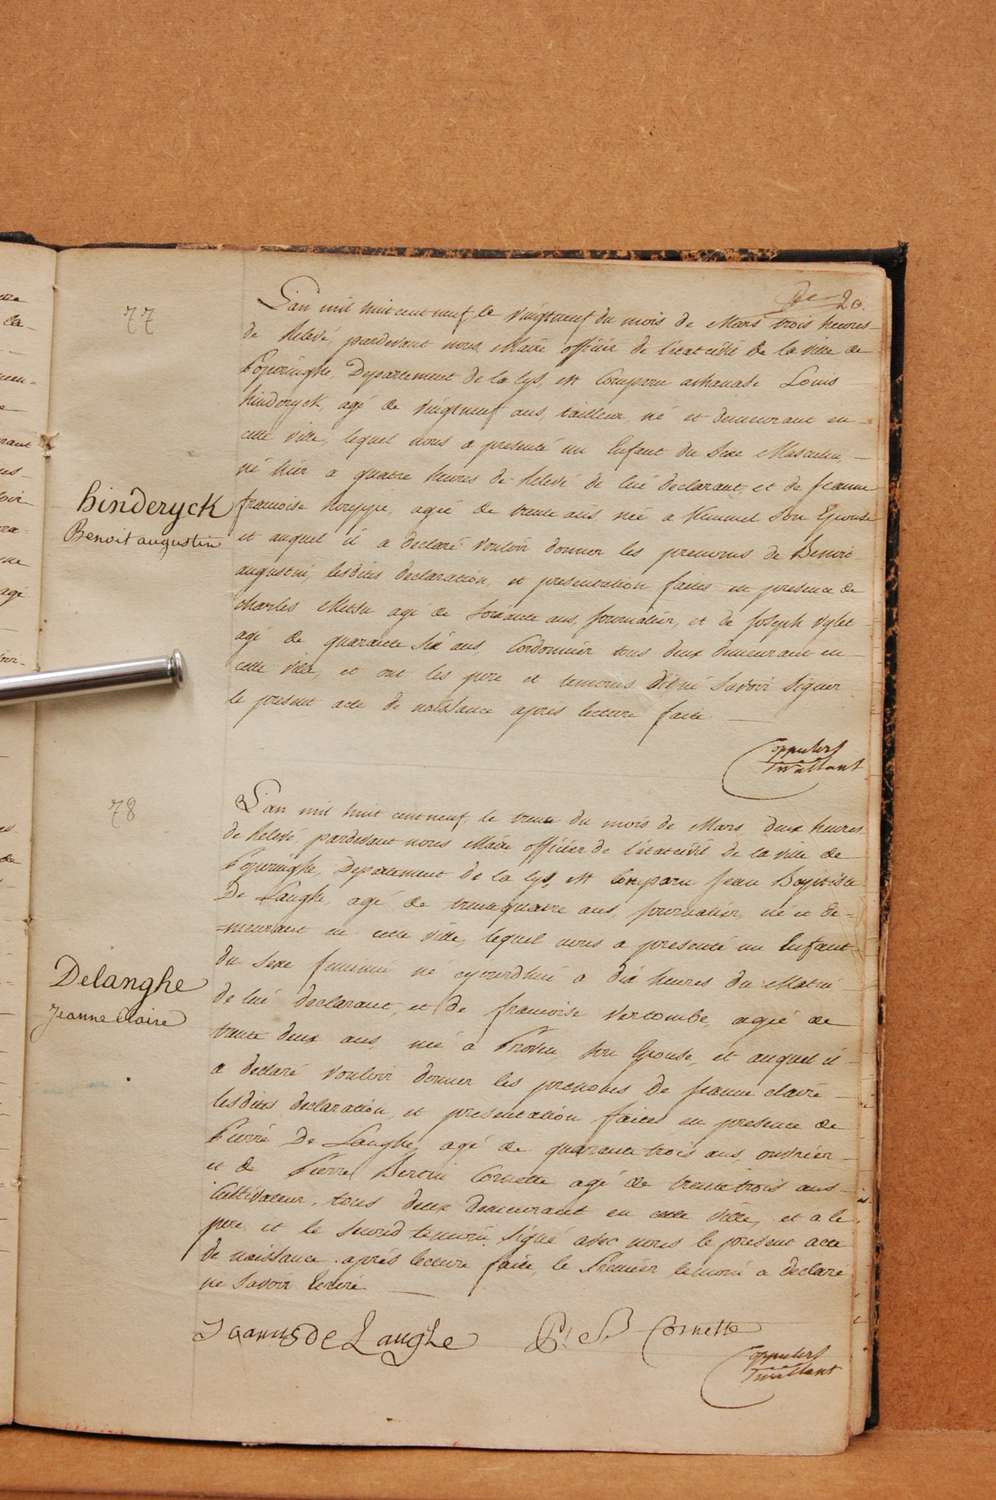 20.
77
L'an mil huit cent neuf, le vingtneuf du mois de Mars trois heures
de Relevé pardevant nous Maire officier de l'état civil de la ville de
Poperinghe, Departement de la Lys, est Comparu athanase Louis
hinderyck, agé de vingtneuf ans, tailleur, né et demeurant en
cette ville, lequel nous a presenté un Enfant du Sexe Masculin,
né hier a quatre heures de Relevé de lui declarant, et de jeanne
francoise agée de trente ans née a Kemmel Son Epouse
et auquel il a declaré vouloir donner les prenoms de Benoit
augustin, lesdites declaration, et presentation faites en presence de
charles agé de Soixante ans, journalier, et de joseph
agé de quarante Six ans, Cordonnier tous deux demeurant en
cette ville, et ont les pere et temoins Savoir Signer
le present acte de naissance après lecture faite
hinderyck
Benoit augustin
78
L'an mil huit cent neuf, le trente du mois de Mars, deux heures
de Relevé, pardevant nous Maire officier de l'état civil de la ville de
Poperinghe, Departement de la Lys, est Comparu jean Baptiste
De Langhe, agé de trentequatre ans, journalier, né et de-
meurant en cette ville, lequel nous a presenté un Enfant
du Sexe feminin né cejourdhui a dix heures du Matin
de lui declarant, et de francoise Vercombe, agée de
trente deux ans, née a Proven Son Epouse, et auquel il
a declaré vouloir donner les prenoms de jeanne claire
lesdites declaration, et presentation faites en presence de
Pierre De Langhe, agé de quarante trois ans, ouvrier
et de Pierre Bertin Cornette agé de trentetrois ans
Cultivateur, tous deux demeurant en cette ville, et a le
pere, et le Second temoin Signé avec nous le present acte
de naissance après lecture faite, le Premier temoin a declaré
ne Savoir Ecrire
Delanghe
Jeanne Claire
Joannes de Langhe P: B Cornette